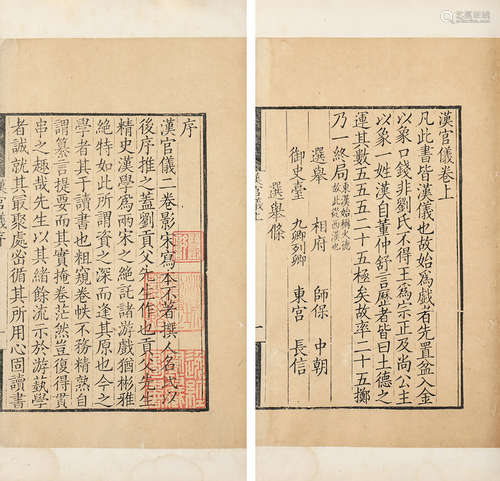 序
漢官儀二卷影宋寫本不著撰人名氏以
後序推之蓋劉貢父先生作也貢父先生
精史漢學爲兩宋之絕託諸游戲猶彬雅
絕特如此所謂資之深而逢其原也今之
學者其于讀書也粗窺卷帙不務精熟自
謂纂言提要而其實掩卷茫然豈復得貫
串之趣哉先生以其緒餘流示於游埶學
者誠就其最聚處密循其所用心固讀書
漢官儀序
一
漢官儀卷上
凡此書皆漢儀也故始爲戲有先置盆入金
以象口錢非劉氏不得王爲宗正及尚公主
以象一姓漢自董仲舒言歷者皆曰土德之
運其數五五五二十五極矣故率二十五擲
乃一終局 東漢始稱火德
故此從西漢也
選舉 相府 師保 中朝
御史臺 九卿列卿 東宮 長信
選舉條